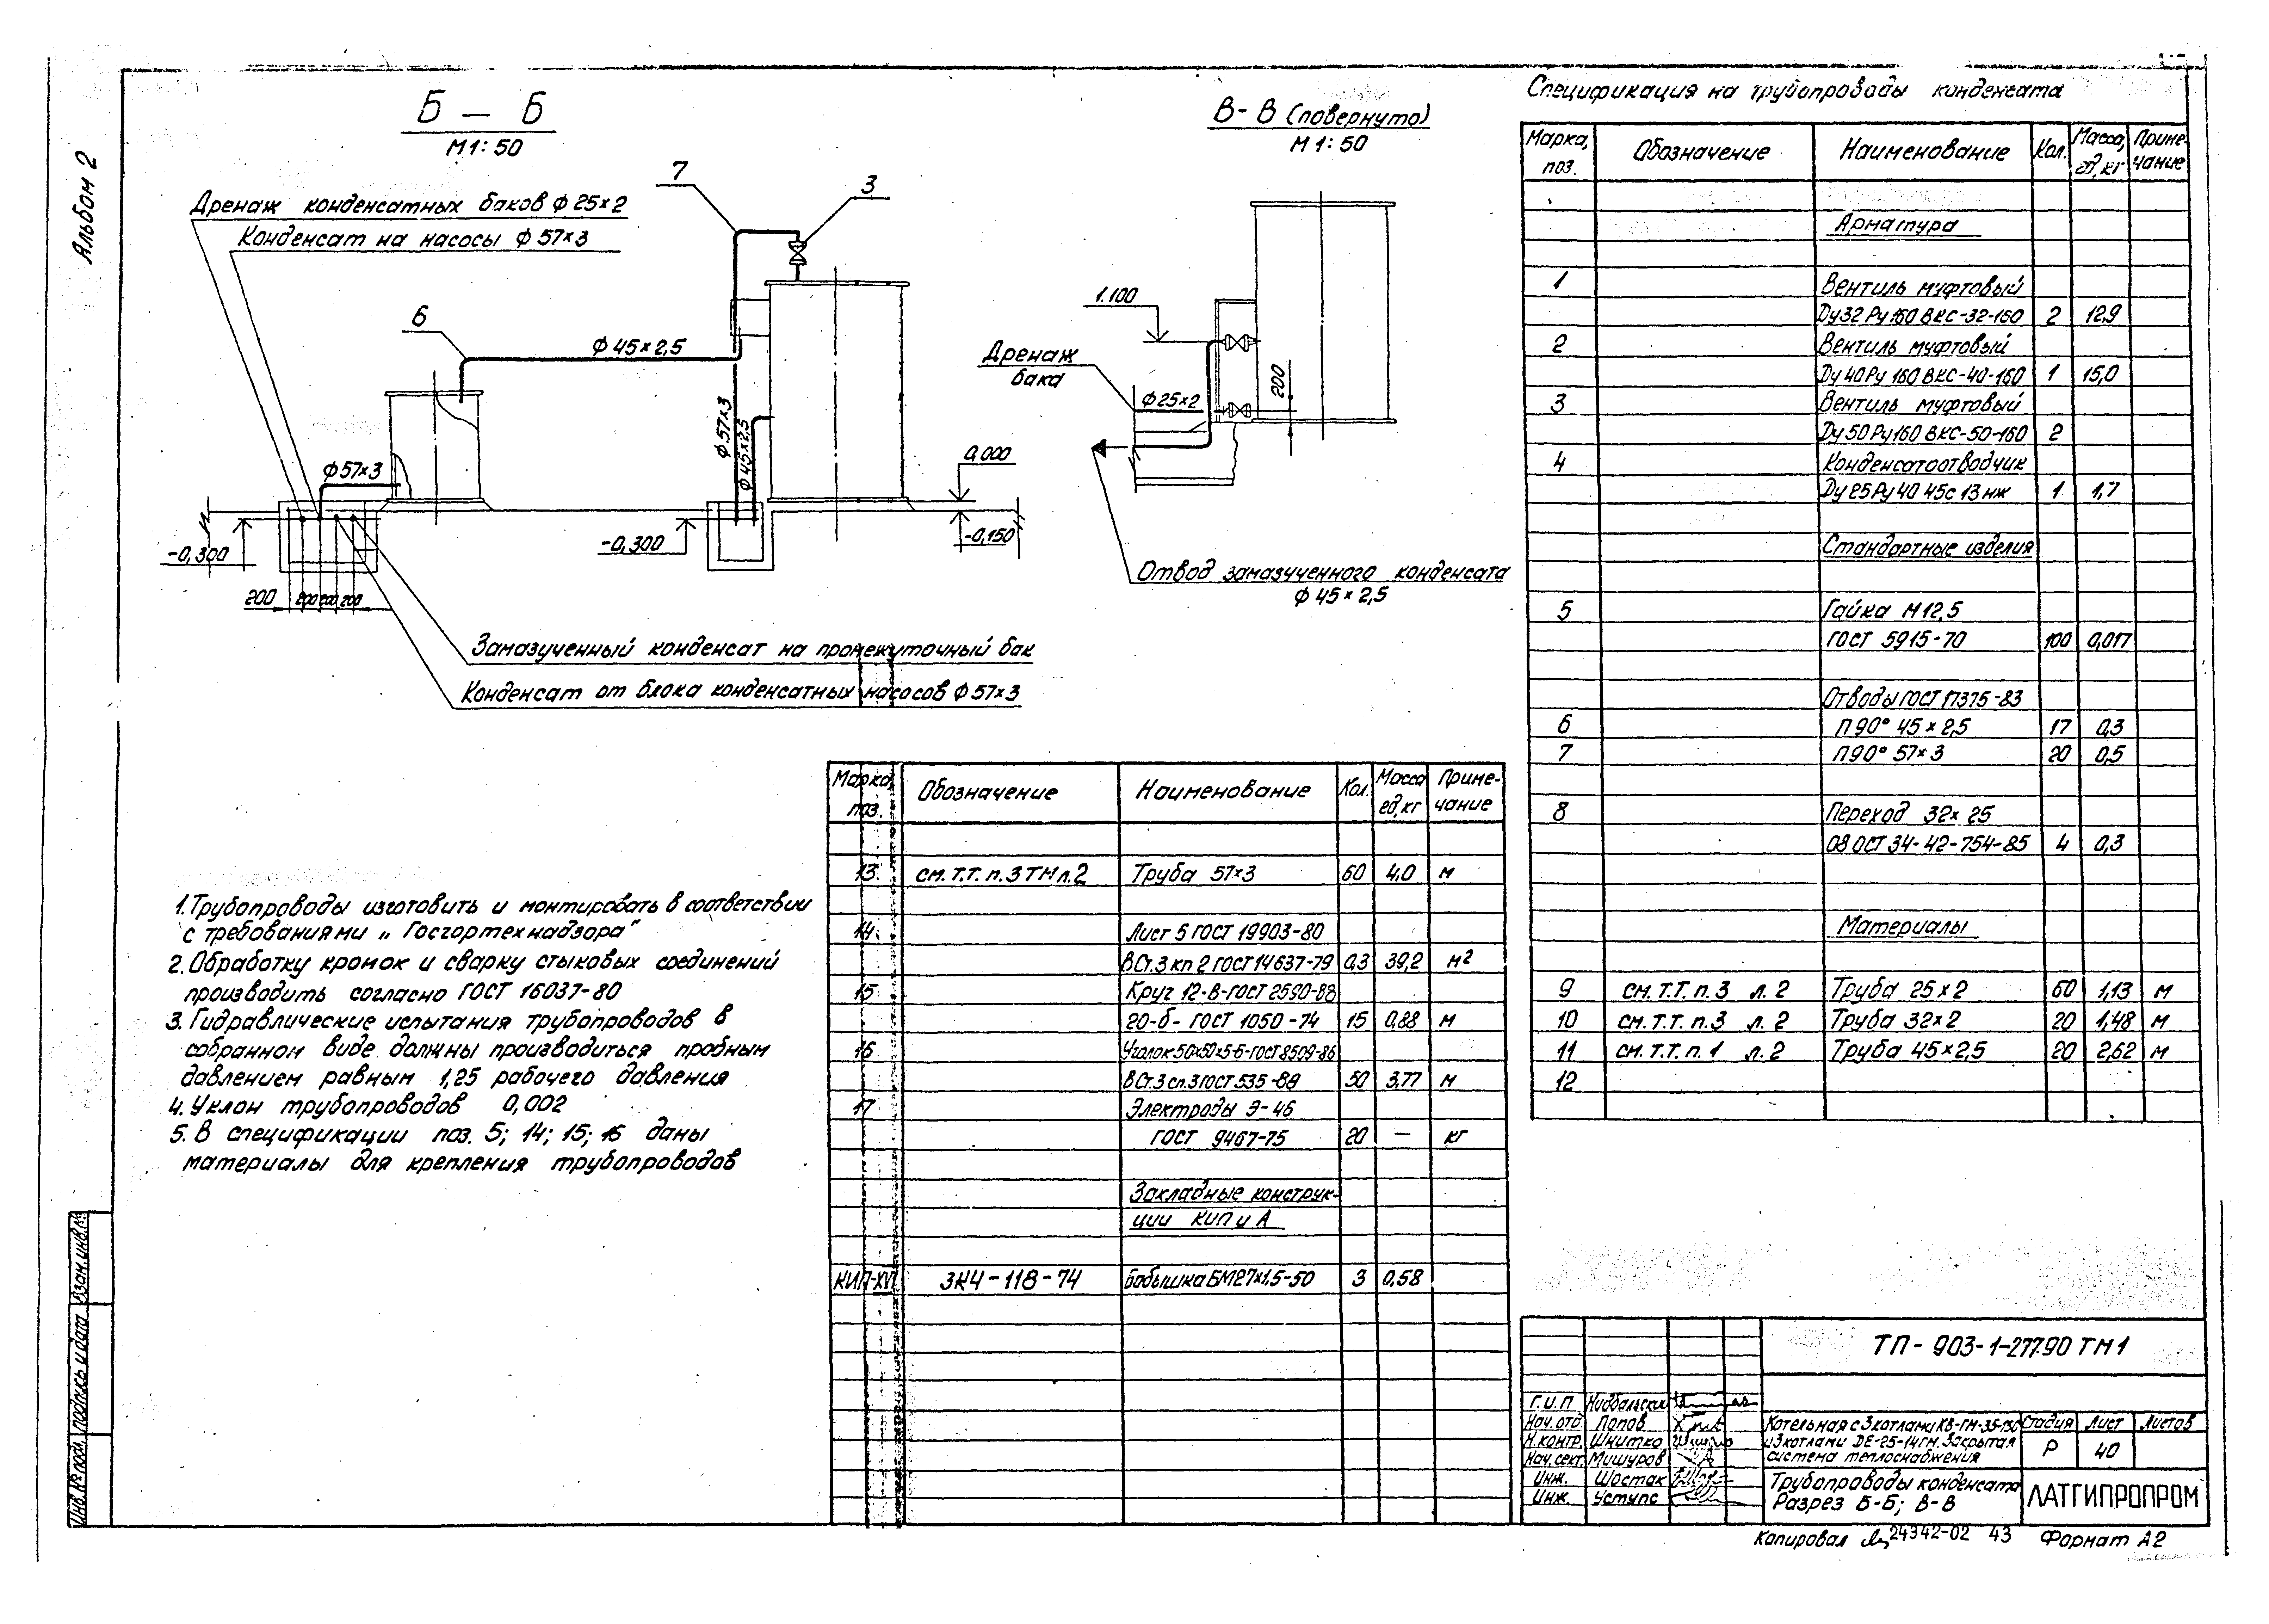 Альбом 2
Б — Б
М 1:50
Дренаж конденсатных баков ф 25×2
Конденсат на насосы ф 57×3
7
3
6
ф 45×2,5
ф 57×3
ф 57×3
ф 45×2,5
0,000
-0,150
-0,300
-0,300
200 200 200 200
Замазученный конденсат на промежуточный бак
Конденсат от блока конденсатных насосов ф 57×3
В-В (повернуто)
М 1:50
1.100
Дренаж
бака
ф 25×2
200
Отвод замазученного конденсата
ф 45×2,5
1. Трубопроводы изготовить и монтировать в соответствии
с требованиями „Госгортехнадзора"
2. Обработку кромок и сварку стыковых соединений
производить согласно ГОСТ 16037-80
3. Гидравлические испытания трубопроводов в
собранном виде должны производиться пробным
давлением равным 1,25 рабочего давления
4. Уклон трубопроводов 0,002
5. В спецификации поз. 5; 14; 15; 16 даны
материалы для крепления трубопроводов
Спецификация на трубопроводы конденсата
Марка, поз. Обозначение Наименование Кол. Масса, ед, кг Примечание
Арматура
1 Вентиль муфтовый
Ду 32 Ру 160 ВКС-32-160 2 12,9
2 Вентиль муфтовый
Ду 40 Ру 160 ВКС-40-160 1 15,0
3 Вентиль муфтовый
Ду 50 Ру 160 ВКС-50-160 2
4 Конденсатоотводчик
Ду 25 Ру 40 45с 13 нж 1 1,7
Стандартные изделия
5 Гайка М 12,5
ГОСТ 5915-70 100 0,017
Отводы ГОСТ 17375-83
6 П 90° 45×2,5 17 0,3
7 П 90° 57×3 20 0,5
8 Переход 32×25
08 ОСТ 34-42-754-85 4 0,3
Материалы
9 см. Т.Т. п. 3 л. 2 Труба 25×2 60 1,13 м
10 см. Т.Т. п. 3 л. 2 Труба 32×2 20 1,48 м
11 см. Т.Т. п. 1 л. 2 Труба 45×2,5 20 2,62 м
12
Марка, поз. Обозначение Наименование Кол. Масса ед, кг Примечание
13. см. Т.Т. п. 3 ТМ л. 2 Труба 57×3 60 4,0 м
14. Лист 5 ГОСТ 19903-80
ВСт.3 кп 2 ГОСТ 14637-79 0,3 39,2 м²
15 Круг 12-В-ГОСТ 2590-88
20-б-ГОСТ 1050-74 15 0,88 м
16 Уголок 50×50×5-Б-ГОСТ 8509-86
ВСт.3 сп.3 ГОСТ 535-88 50 3,77 м
17 Электроды Э-46
ГОСТ 9467-75 20 — кг
Закладные конструк-
ции КИП и А
КИП-XVI ЗК4-118-74 Бобышка БМ27×1,5-50 3 0,58
ТП-903-1-277.90 ТМ 1
Г.И.П Нидбальский
Нач. отд. Попов
Н. контр. Шнитко
Нач. сект. Мишуров
Инж. Шостак
Инж. Уступс
Котельная с 3 котлами КВ-ГМ-35-150
и 3 котлами ДЕ-25-14ГМ. Закрытая
система теплоснабжения
Стадия Лист Листов
Р 40
Трубопроводы конденсата
Разрез Б-Б; В-В
ЛАТГИПРОПРОМ
Копировал 24342-02 43 Формат А2
Взам. инв. №
Подпись и дата
Инв. № подл.